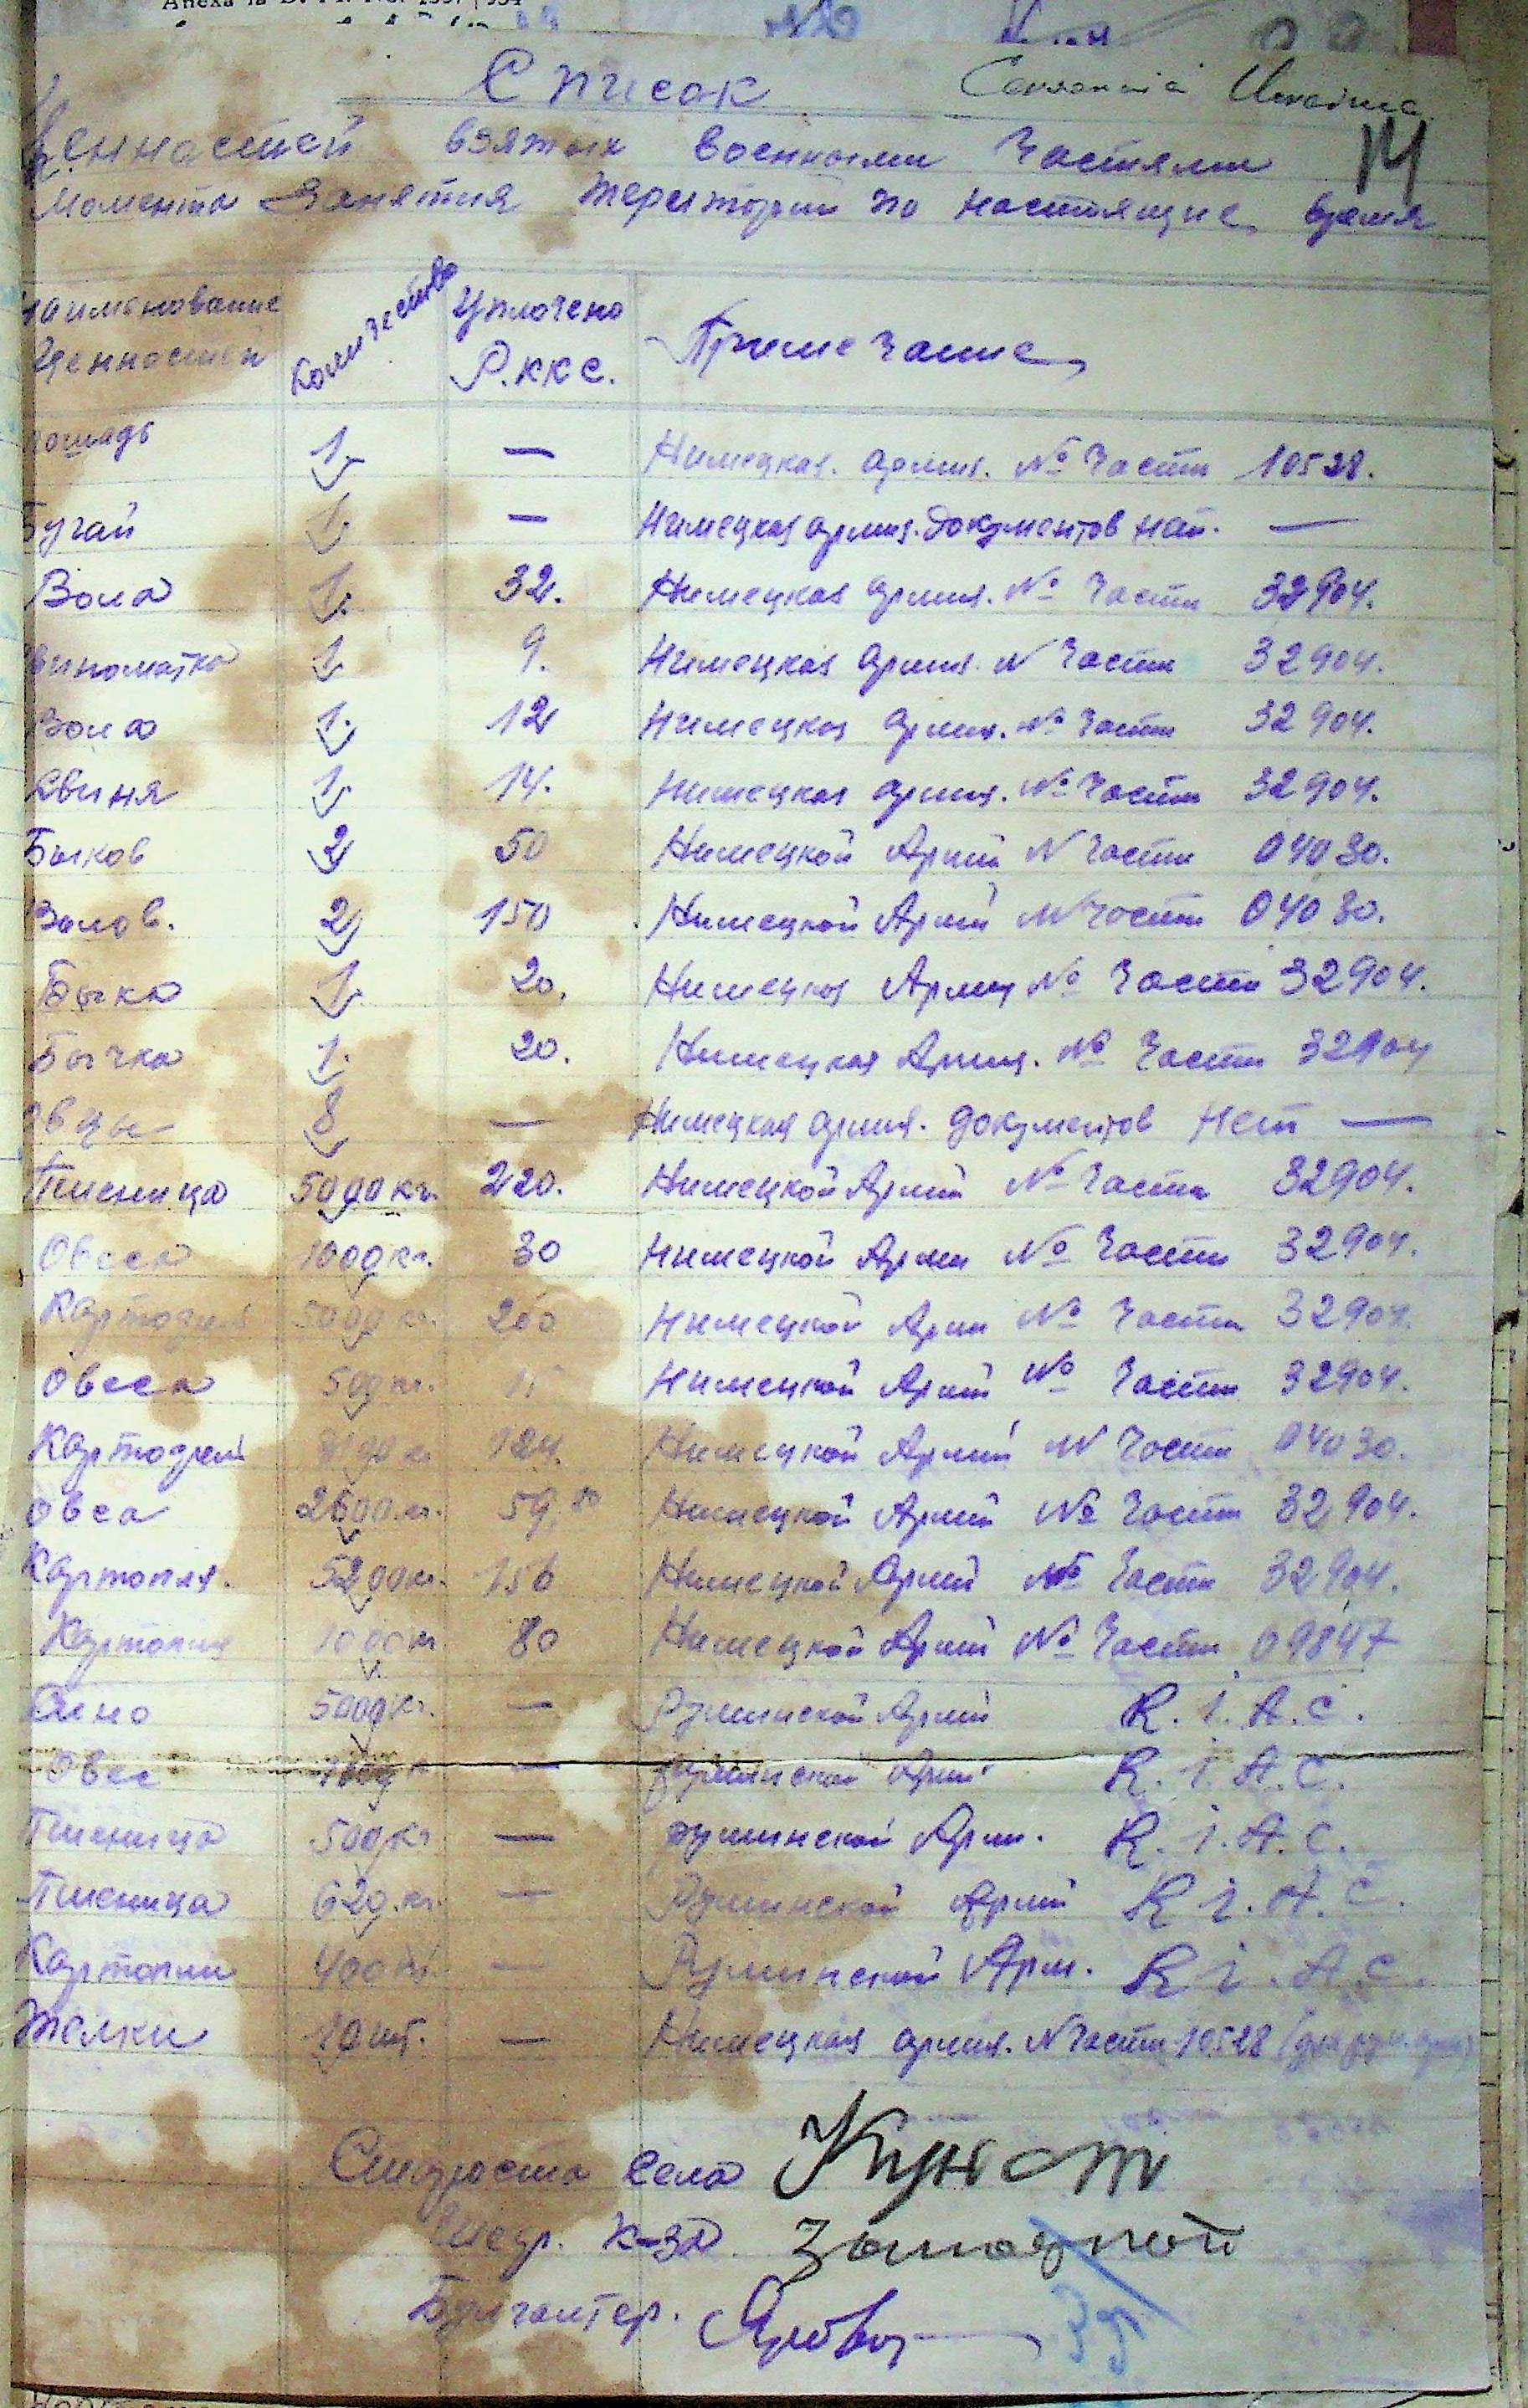 Anexa la
Список
ценностей взятых военными частями
момента занятия територии по настоящие время
14
Наименование ценностей Количество Уплочено Р.ккс. Примечание
лошадь 1. — Нимецкая. армия. № части 10528.
Бугай 1. — Нимецкая армия. Документов нет. —
Вола 1. 32. Нимецкая армия. № части 32904.
виноматка 1 9. Нимецкая армия. N части 32904.
Вола 1. 12 Нимецкая армия. № части 32904.
Свиня 1. 14. Нимецкая армия. № части 32904.
Быков 2 50 Нимецкой Армии N части 04030.
Волов. 2 150 Нимецкой Армий N части 04030.
Быка 1. 20. Нимецкая Армия № части 32904.
Бычка 1. 20. Нимецкая Армия. № части 32904
овцы 8 — Нимецкая армия. документов нет —
Пшеница 5000 кг. 220. Нимецкой Армий № части 32904.
Овеса 1000 кг. 30 Нимецкой Армии № части 32904.
Картофиль 5000 кг. 200 Нимецкой Арми № части 32904.
Овеса 500 кг. 15 Нимецкой Армий № части 32904.
Картофель 124. Нимецкой Армий N части 04030.
Овса 2600 кг. 59.50 Нимецкой Армий № части 32904.
Картопля. 5200 кг. 156 Нимецкой Армий № части 32904.
Картопля 1000 кг. 80 Нимецкой Армий № части 09847
Сено 5000 кг. — Румынской Армий R. i. A. C.
Овес — румынской Армий R. i. A. C.
Пшеница 500 кг — румынской Арми. R. i. A. C.
Пшеница 620. кг. — Румынской Армий R i. A. C.
Картопли 400 кг. — Румынской Арми. R i. A. C.
Телки 10 шт. — Нимецкая армия. N части 10528
Староста села
к-за
Бухгалтер.